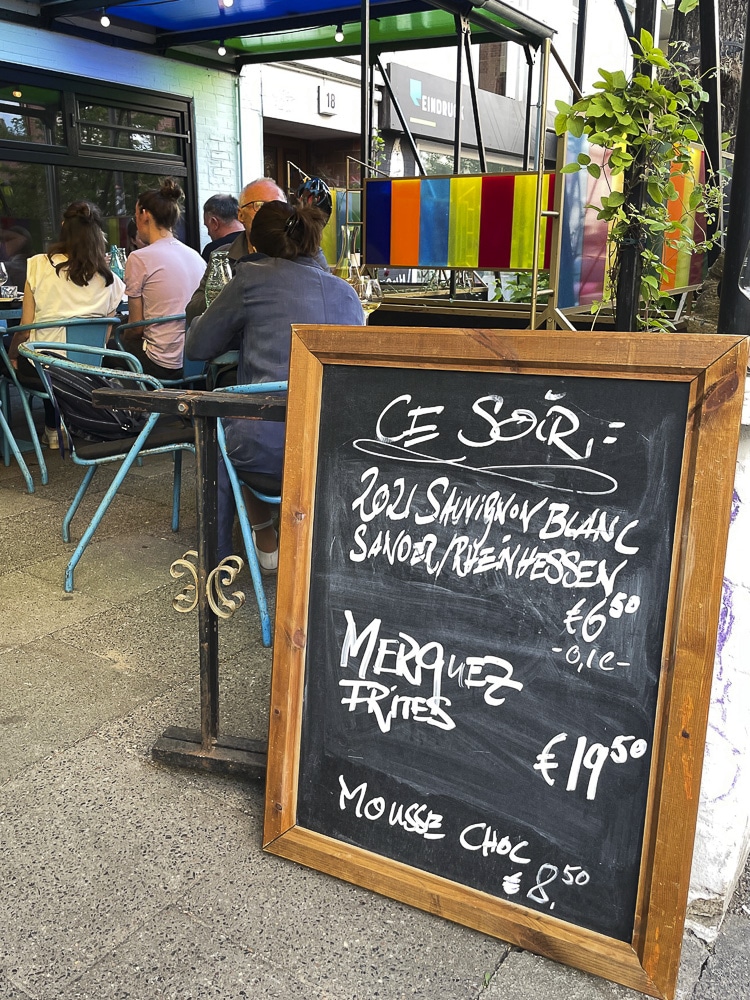 18
EINDRUCK
CE SOIR:
2021 SAUVIGNON BLANC
SANDER/RHEINHESSEN
€6⁵⁰
-0,1L-
MERQUEZ
FRITES
€19⁵⁰
MOUSSE CHOC
€8,⁵⁰